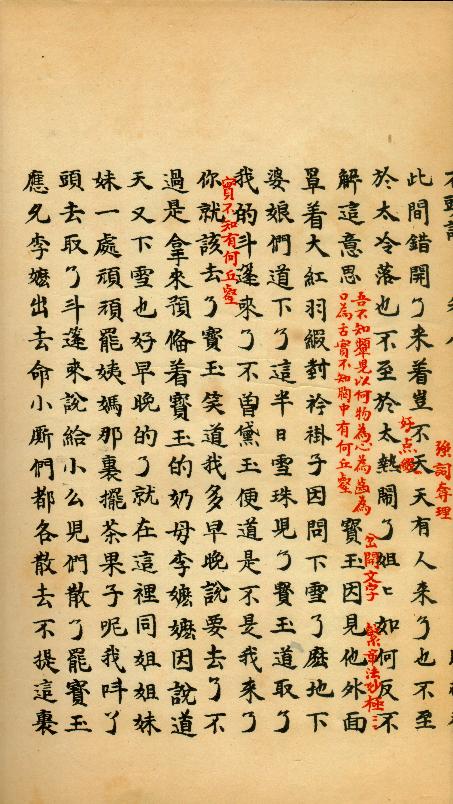 此間錯開了来着豈不天天有人来了也不至
強詞奪理
於太冷落也不至於太熱鬧了姐〻如何反不
好点綴
解這意思
吾不知顰児以何物為心為齒為
口為舌實不知胸中有何丘壑
寳玉因見他外面
岔開文字
繁章法妙極〻〻
罩着大紅羽緞對衿褂子因問下雪了麽地下
婆娘們道下了這半日雪珠児了寳玉道取了
我的斗蓬來了不曽黛玉便道是不是我来了
實不知有何丘壑
你就該去了寳玉笑道我多早晚說要去了不
過是拿来預俻着寳玉的奶母李嬷嬷因說道
天又下雪也好早晚的了就在這裡同姐姐妹
妹一處頑頑罷姨媽那裏擺茶果子呢我呌丫
頭去取了斗蓬来說給小么児們散了罷寳玉
應允李嬷出去命小厮們都各散去不提這裏